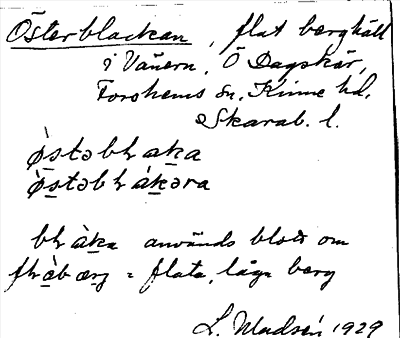 Österblackan, flat berghäll
i Vänern, Ö Dagskär,
Forshems sn, Kinne hd,
Skarab. l.
ø̀stəbɽaka
ø̀stəbɽákəra
bɽàka används blott om
flàbærj = flata, låga berg
L. Modsén 1929